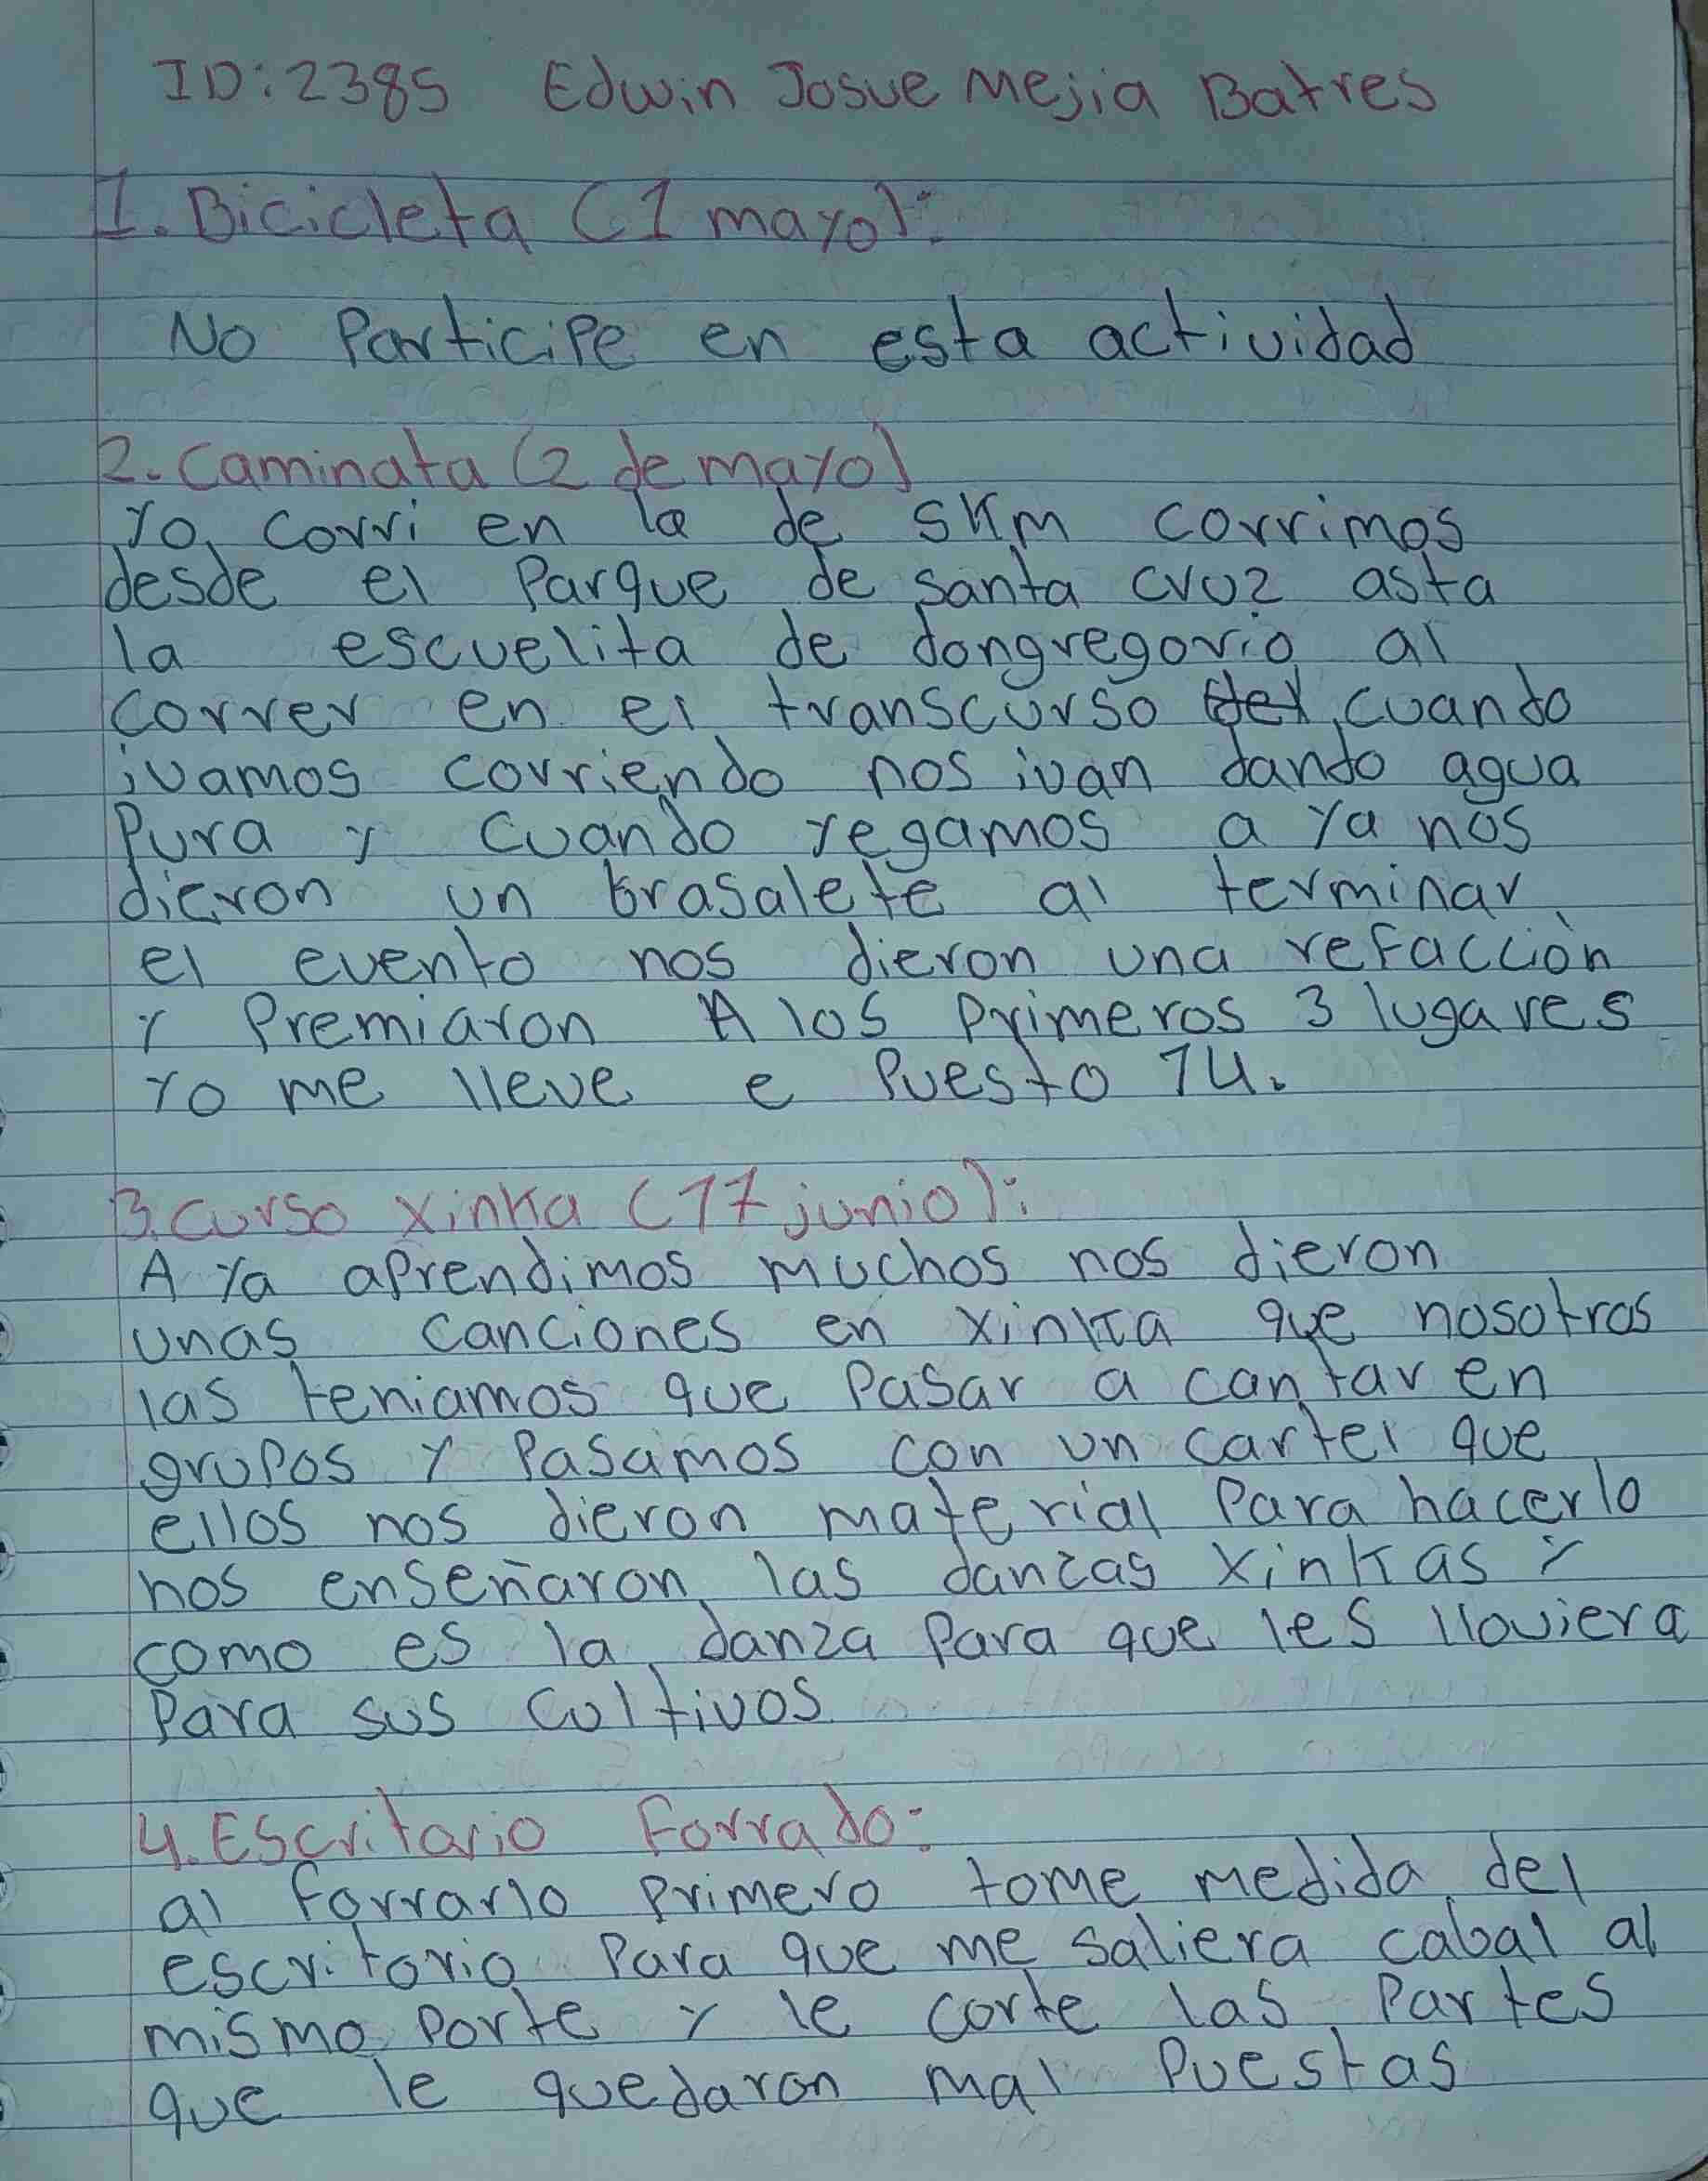 ID:2385 Edwin Josue Mejia Batres
1. Bicicleta (1 mayo):
No Participe en esta actividad
2. Caminata (2 de mayo)
Yo corri en la de 5Km corrimos
desde el Parque de santa cruz asta
la escuelita de dongregorio al
correr en el transcurso del cuando
ivamos corriendo nos ivan dando agua
Pura y cuando yegamos a ya nos
dieron un brasalete al terminar
el evento nos dieron una refacción
y Premiaron A los primeros 3 lugares
Yo me lleve e Puesto 14.
3. Curso xinka (17 junio):
A ya aprendimos muchos nos dieron
unas canciones en xinka que nosotros
las teniamos que Pasar a cantar en
grupos y Pasamos con un cartel que
ellos nos dieron material Para hacerlo
nos enseñaron las danzas xinkas y
como es la danza Para que les lloviera
Para sus cultivos
4. Escritorio Forrado:
al forrarlo Primero tome medida del
escritorio Para que me saliera cabal al
mismo Porte y le corte las Partes
que le quedaron mal Puestas